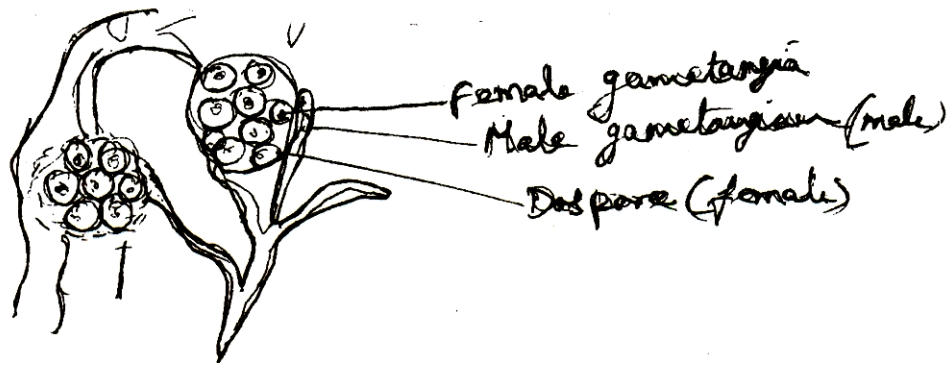 Female gametangia
Male gametangium (male)
Oospore (female)